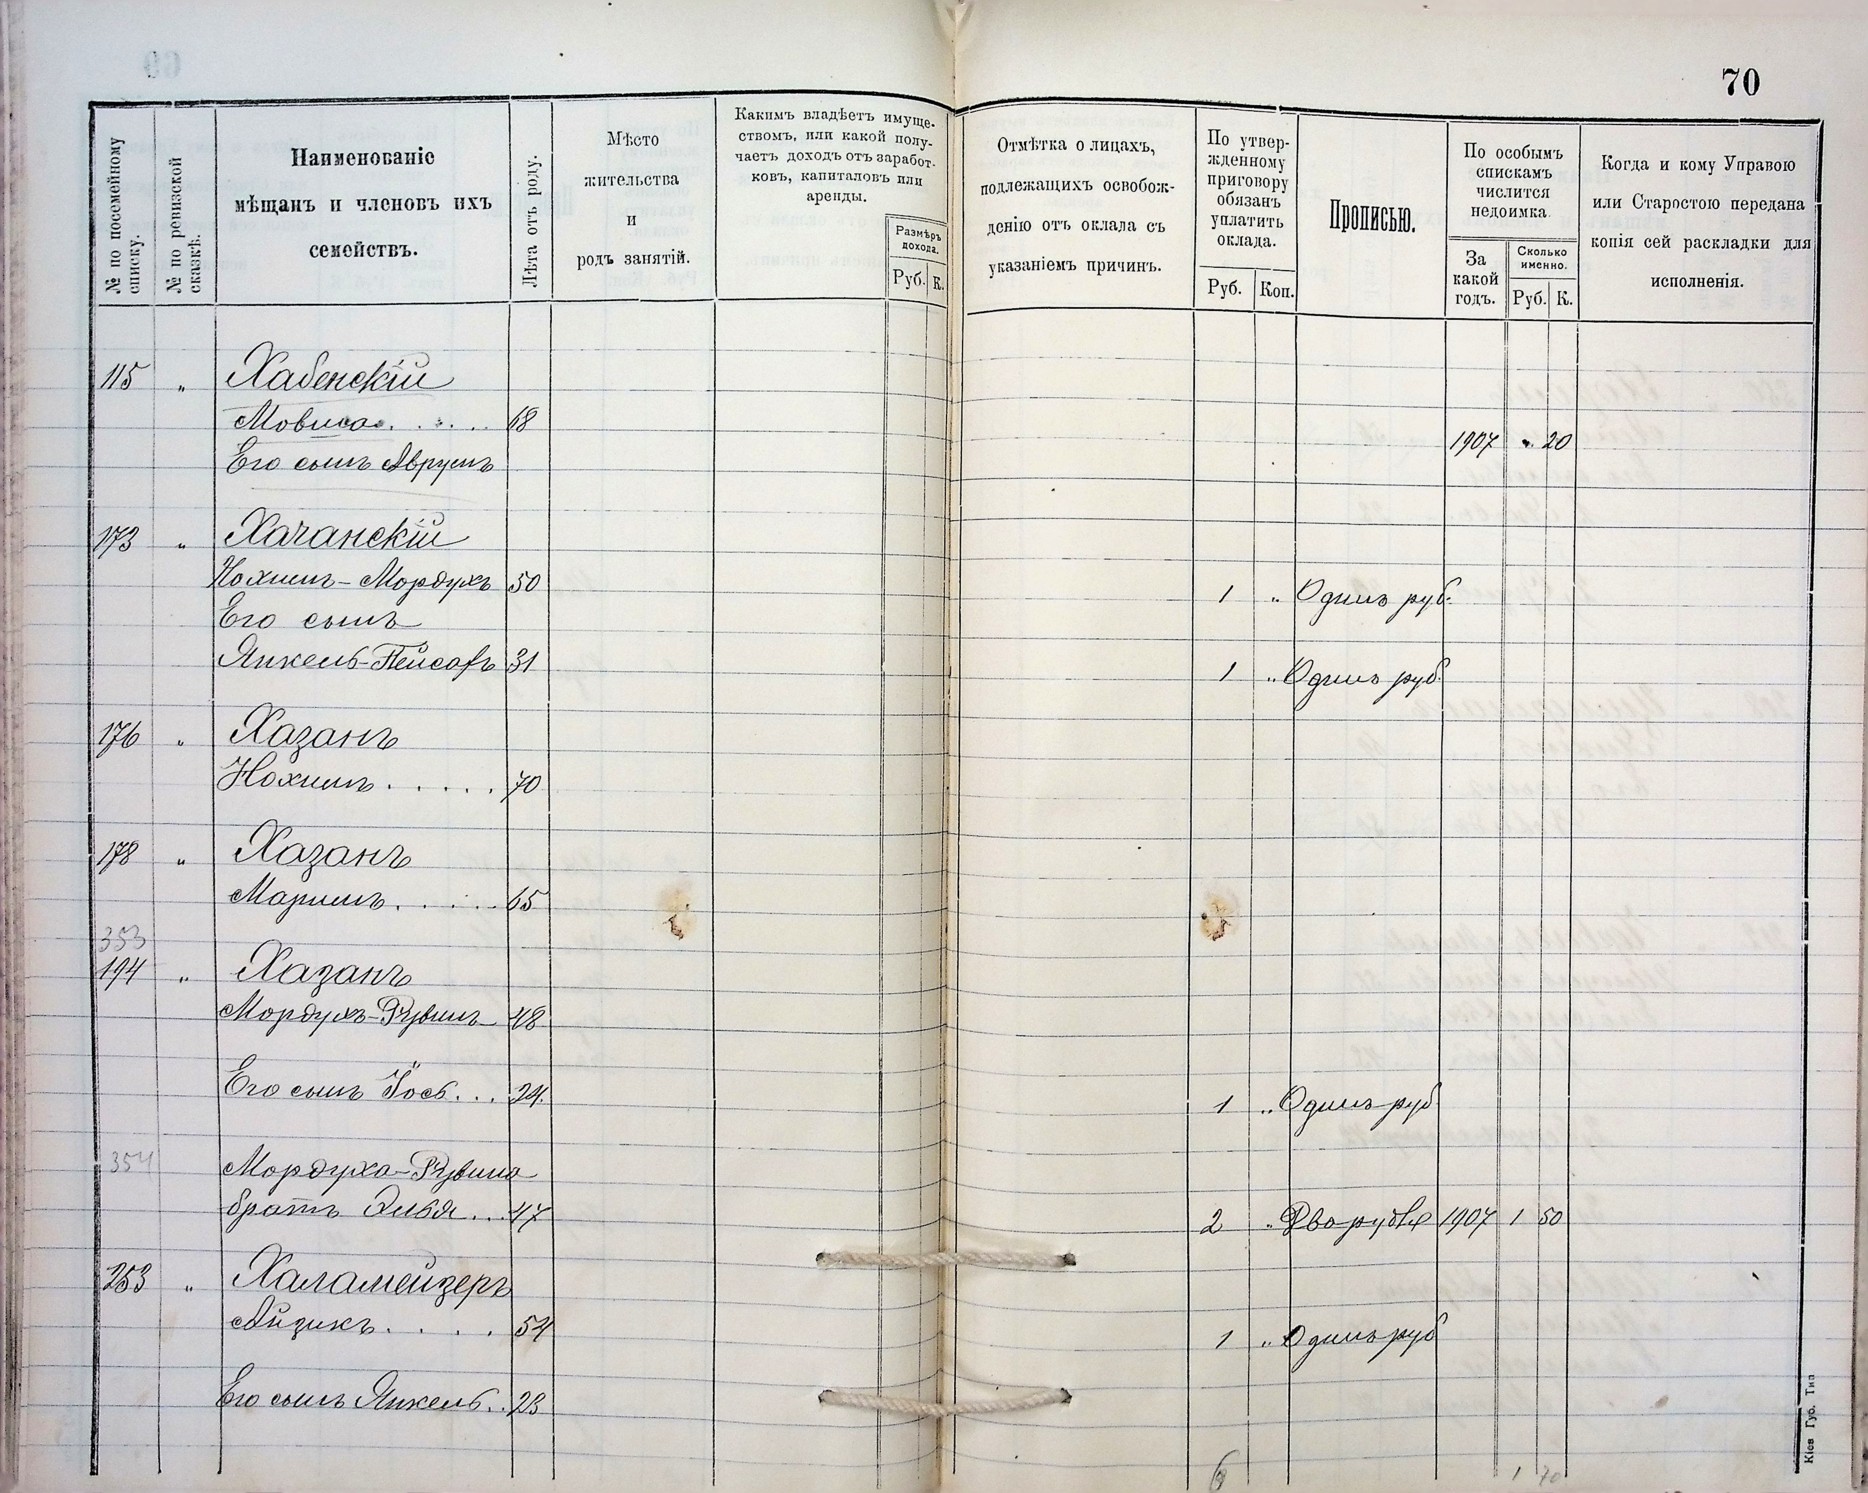 70
№ по посемейному списку.
№ по ревизской сказкѣ.
Наименованіе
мѣщанъ и членовъ ихъ
семействъ.
Лѣта отъ роду.
Мѣсто
жительства
и
родъ занятій.
Какимъ владѣетъ имуще-
ствомъ, или какой полу-
чаетъ доходъ отъ заработ-
ковъ, капиталовъ или
аренды.
Размѣръ
дохода.
Руб. К.
Отмѣтка о лицахъ,
подлежащихъ освобож-
денію отъ оклада съ
указаніемъ причинъ.
По утвер-
жденному
приговору
обязанъ
уплатить
оклада.
Руб. Коп.
Прописью.
По особымъ
спискамъ
числится
недоимка.
За
какой
годъ.
Сколько
именно.
Руб. К.
Когда и кому Управою
или Старостою передана
копія сей раскладки для
исполненія.
115 „ Хабенскій
Мовша . . . . 68
1907 „ 20
Его сынъ Аврумъ
173 „ Хачанскій
Нохимъ-Мордухъ 50 1 „ Одинъ руб.
Его сынъ
Янкель-Пейсахъ 31 1 „ Одинъ руб.
176 „ Хазанъ
Нохимъ . . . . . 70
178 „ Хазанъ
Маримъ . . . . . 65
353
194 „ Хазанъ
Мордухъ-Рувинъ 48
Его сынъ Іось . . . 24 1 „ Одинъ руб
354 Мордуха-Рувина
братъ Элья . . . 47 2 „ Два рубля 1907 1 50
253 „ Халамейзеръ
Айзикъ . . . . 54 1 „ Одинъ руб
Его сынъ Янкель . . 23
6 1 70
Кіев Губ. Тип